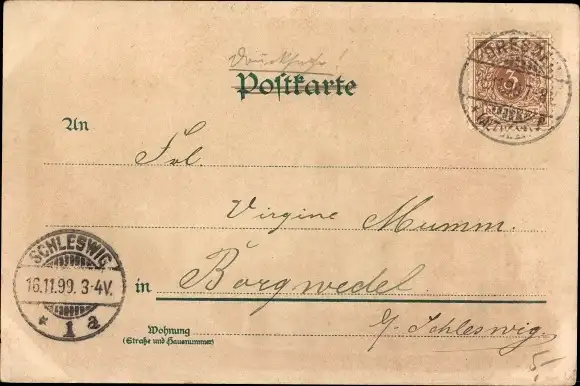 Drucksache!
Postkarte
DRESDEN
3
An
Frl.
Virginie Mumm.
SCHLESWIG
16.11.99. 3-4V.
* 1 a
in Borgwedel
b/ Schleswig
Wohnung
(Straße und Hausnummer)
5.-